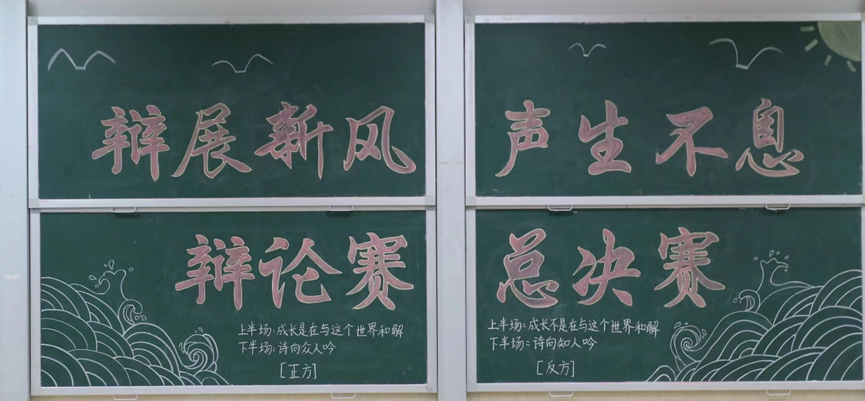 辩展新风 声生不息
辩论赛 总决赛
上半场:成长是在与这个世界和解
下半场:诗向众人吟
[正方]
上半场:成长不是在与这个世界和解
下半场:诗向知人吟
[反方]